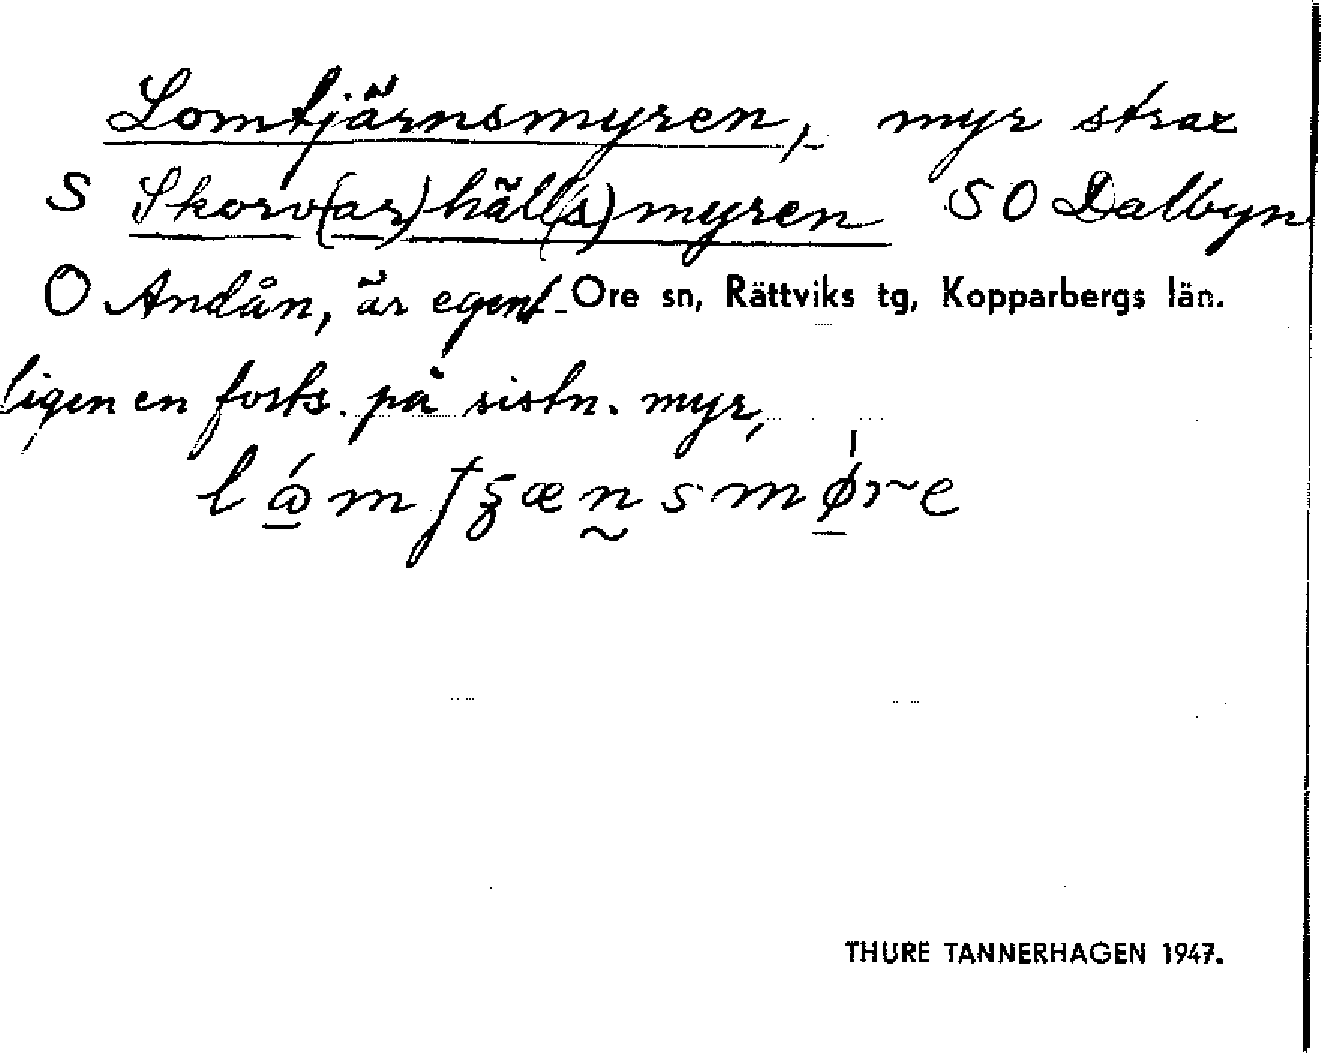 Lomtjärnsmyren, myr strax
S Skorv(ar)häll(s)myren SO Dalbyn
O Andån, är egent-
Ore sn, Rättviks tg, Kopparbergs län.
ligen en forts. på sistn. myr,
THURE TANNERHAGEN 1947.